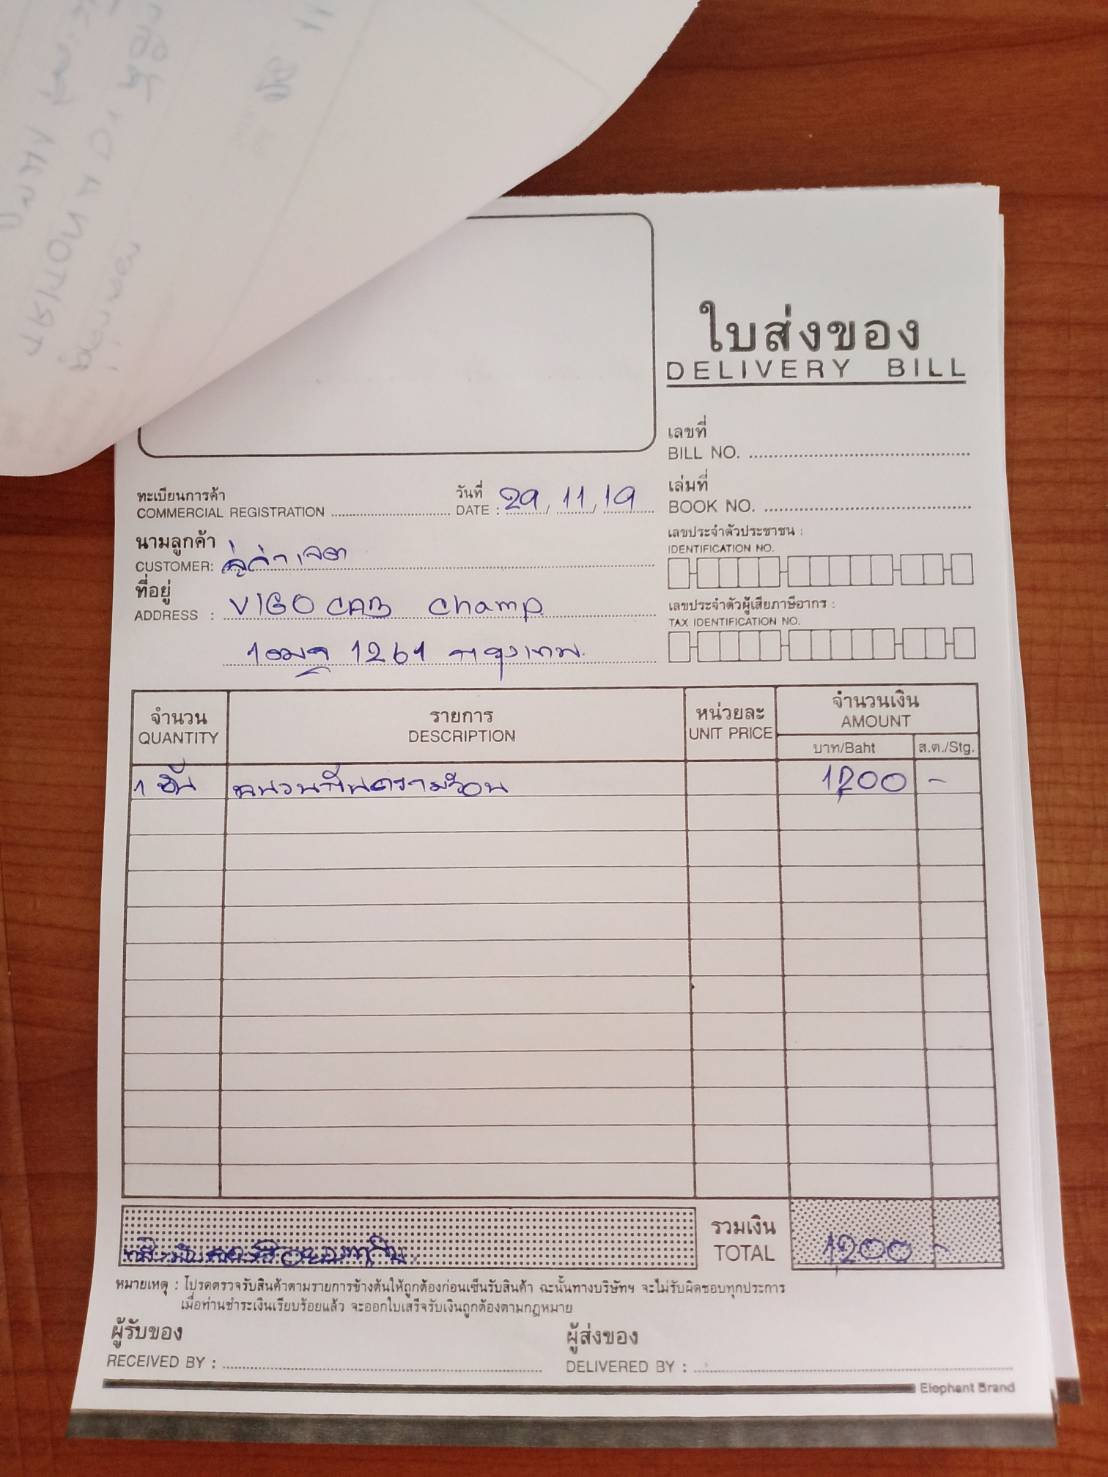 ใบส่งของ
DELIVERY BILL
เลขที่
BILL NO.
ทะเบียนการค้า
COMMERCIAL REGISTRATION
วันที่
DATE : 29, 11, 19
เล่มที่
BOOK NO.
นามลูกค้า
CUSTOMER:
เลขประจำตัวประชาชน :
IDENTIFICATION NO.
ที่อยู่
ADDRESS : VIGO CAB champ
เลขประจำตัวผู้เสียภาษีอากร :
TAX IDENTIFICATION NO.
1ฒฉ 1261 กรุงเทพ.
จำนวน
QUANTITY
รายการ
DESCRIPTION
หน่วยละ
UNIT PRICE
จำนวนเงิน
AMOUNT
บาท/Baht
ส.ต./Stg.
1 อัน ฉนวนกันความร้อน 1200 -
รวมเงิน
TOTAL 1200 -
หนึ่งพันสองร้อยบาทถ้วน
หมายเหตุ : โปรดตรวจรับสินค้าตามรายการข้างต้นให้ถูกต้องก่อนเซ็นรับสินค้า ฉะนั้นทางบริษัทฯ จะไม่รับผิดชอบทุกประการ
เมื่อท่านชำระเงินเรียบร้อยแล้ว จะออกใบเสร็จรับเงินถูกต้องตามกฎหมาย
ผู้รับของ
RECEIVED BY :
ผู้ส่งของ
DELIVERED BY :
Elephant Brand